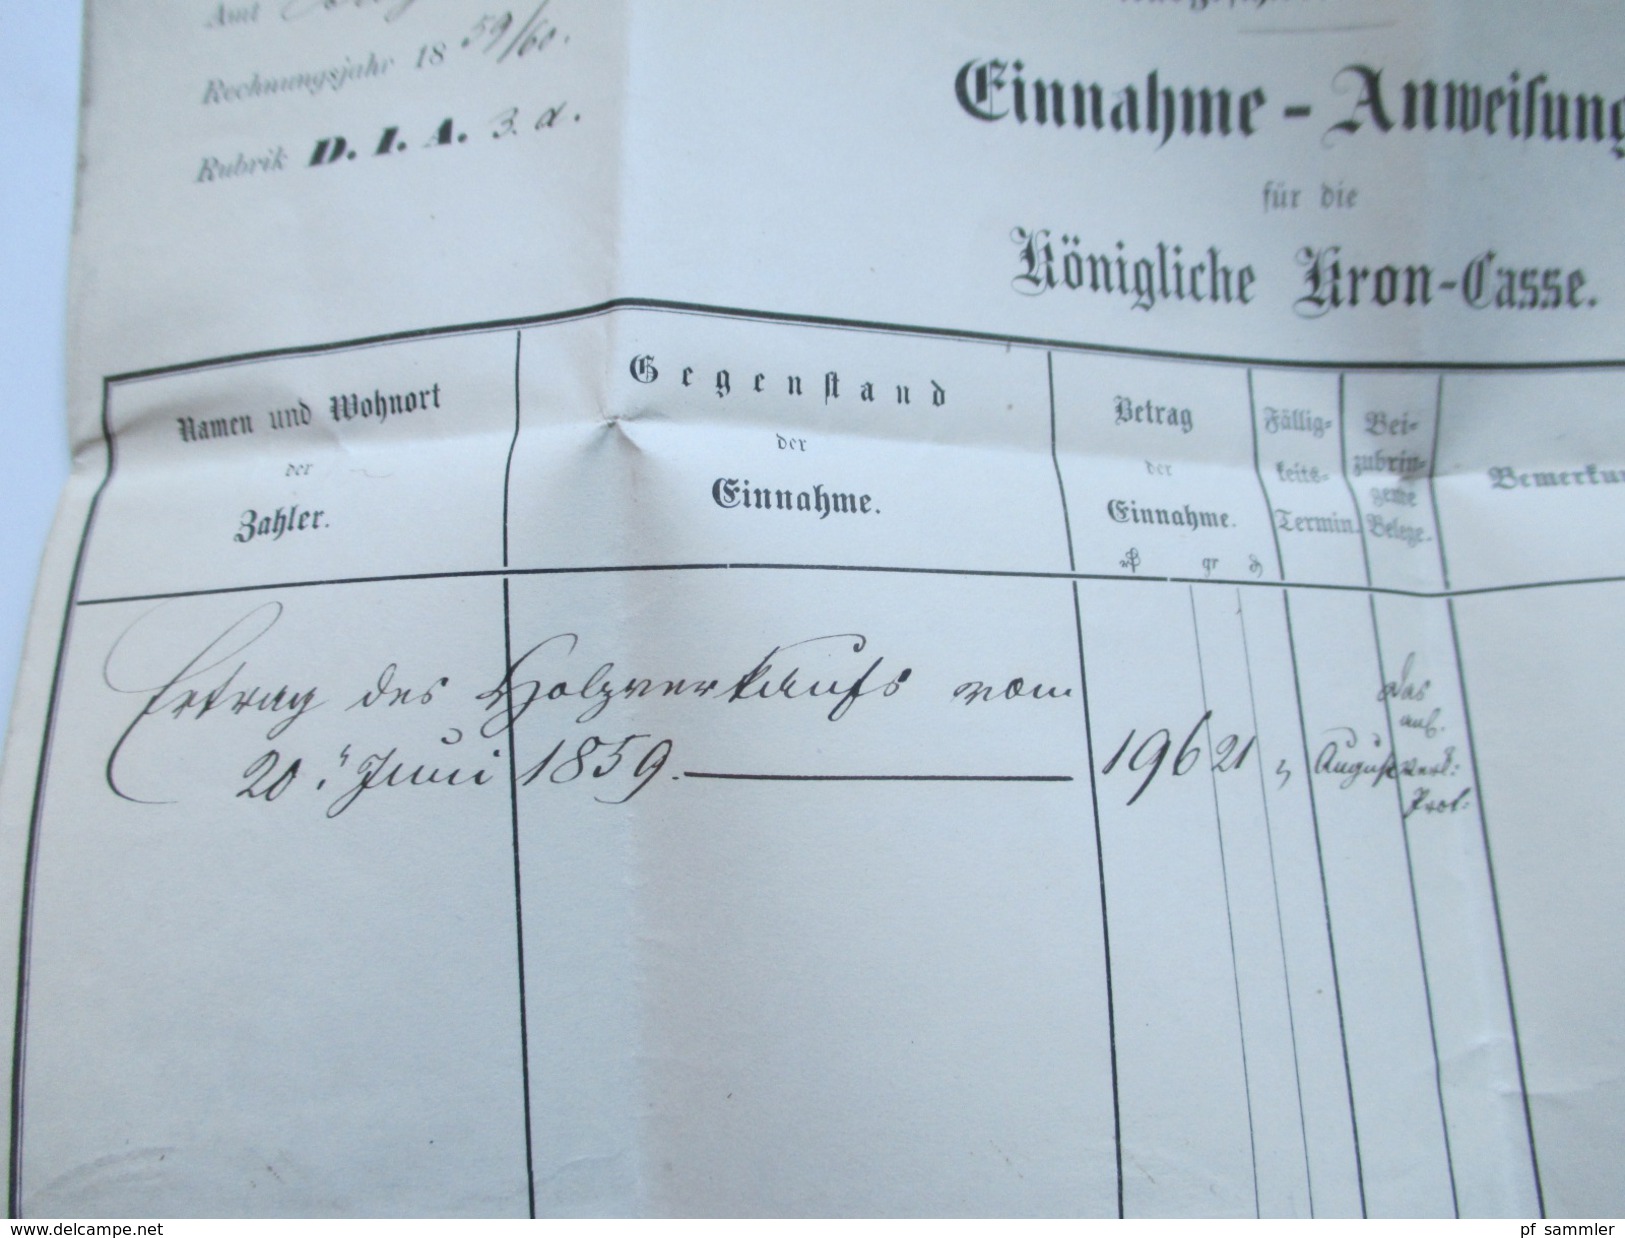 Amt
Rechnungsjahr 18 59/60.
Rubrik D. I. A. 3. d.
Einnahme - Anweisung
für die
Königliche Kron-Casse.
Namen und Wohnort
der
Zahler.
Gegenstand
der
Einnahme.
Betrag
der
Einnahme.
gr
Fällig-
keits-
Termin.
Bei-
zubrin-
gende
Belege.
Bemerku
Ertrag des Holzverkaufs vom
20. Juni 1859.
196 21 „
August
das
Verk:
Prot:
www.delcampe.net
pf_sammler